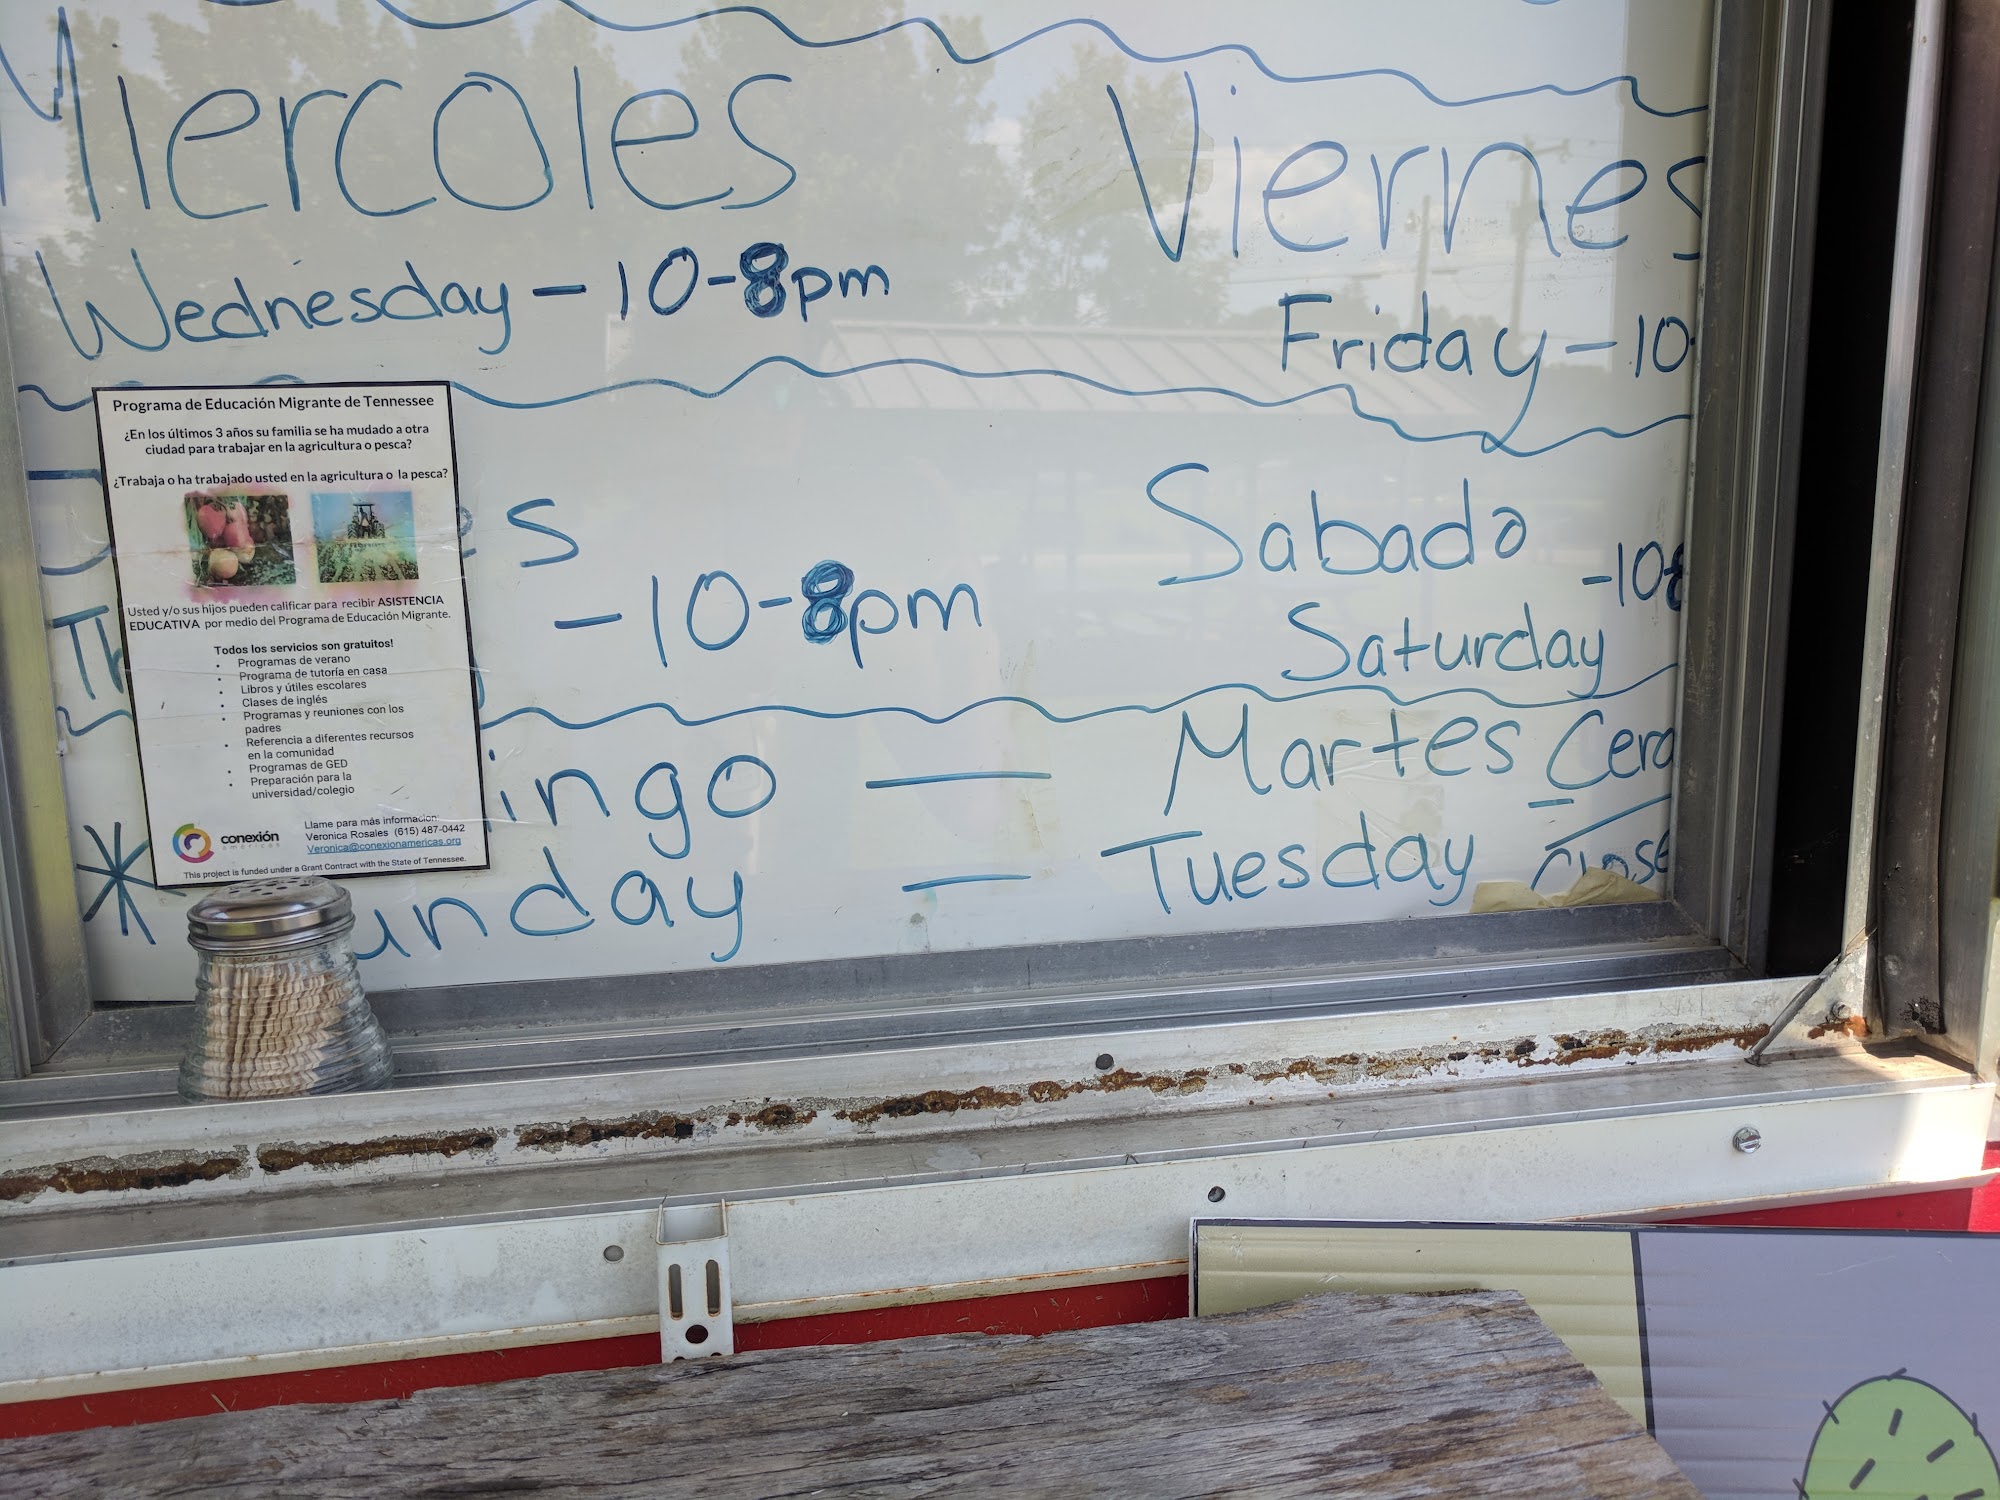 Miercoles
Wednesday - 10-8pm
Viernes
Friday - 10
Programa de Educación Migrante de Tennessee
¿En los últimos 3 años su familia se ha mudado a otra
ciudad para trabajar en la agricultura o pesca?
¿Trabaja o ha trabajado usted en la agricultura o la pesca?
Usted y/o sus hijos pueden calificar para recibir ASISTENCIA
EDUCATIVA por medio del Programa de Educación Migrante.
Todos los servicios son gratuitos!
• Programas de verano
• Programa de tutoría en casa
• Libros y útiles escolares
• Clases de inglés
• Programas y reuniones con los
padres
• Referencia a diferentes recursos
en la comunidad
• Programas de GED
• Preparación para la
universidad/colegio
conexión
américas
Llame para más informacion:
Veronica Rosales (615) 487-0442
Veronica@conexionamericas.org
This project is funded under a Grant Contract with the State of Tennessee.
es
Th
- 10-8pm
Sabado
Saturday -10-8
* ingo —
unday —
Martes Cera
Tuesday Close